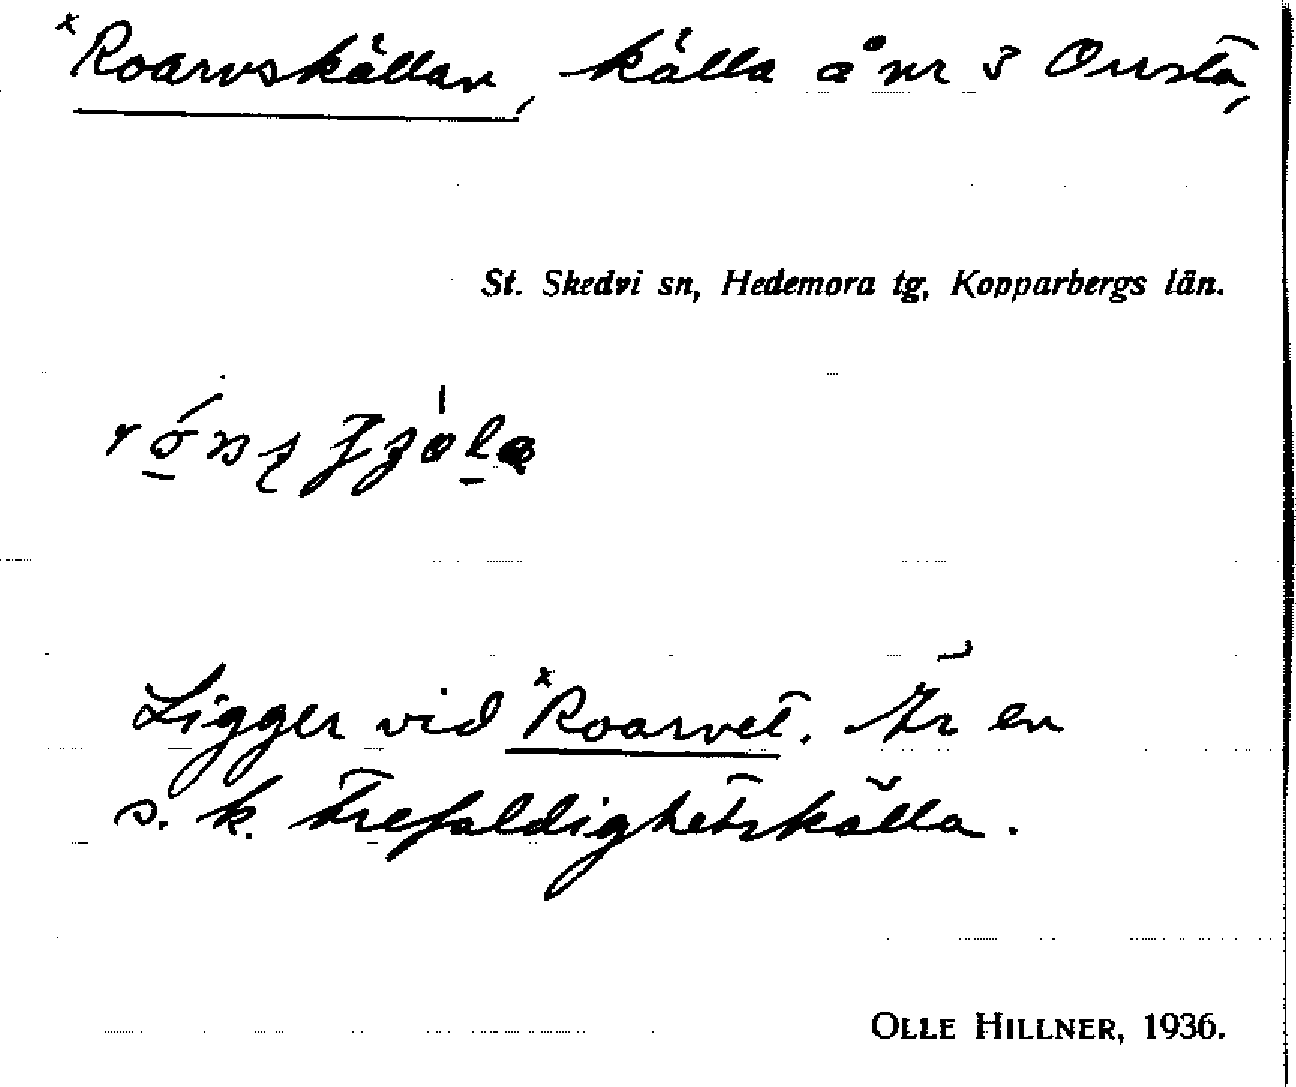 *Roarvskällan, källa å nr 3 Onsta,
St. Skedvi sn, Hedemora tg, Kopparbergs län.
Ligger vid *Roarvet. Är en
s. k. trefaldighetskälla.
OLLE HILLNER, 1936.